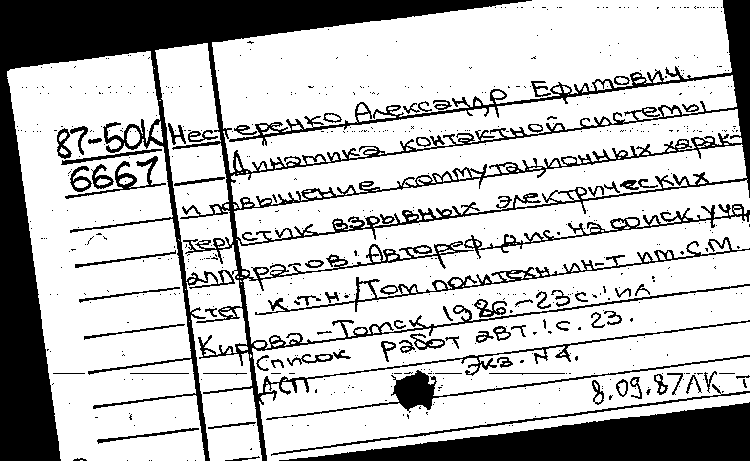 87-50К
6667
Нестеренко, Александр Ефимович.
Динамика контактной системы
и повышение коммутационных харак-
теристик взрывных электрических
аппаратов: Автореф. дис. на соиск. учен.
степ. к.т.н./Том. политехн. ин-т им. С.М.
Кирова. - Томск, 1986. - 23 с.: ил
Список работ авт.: с. 23.
ДСП. Экз. N 4.
8.09.87 ЛК т